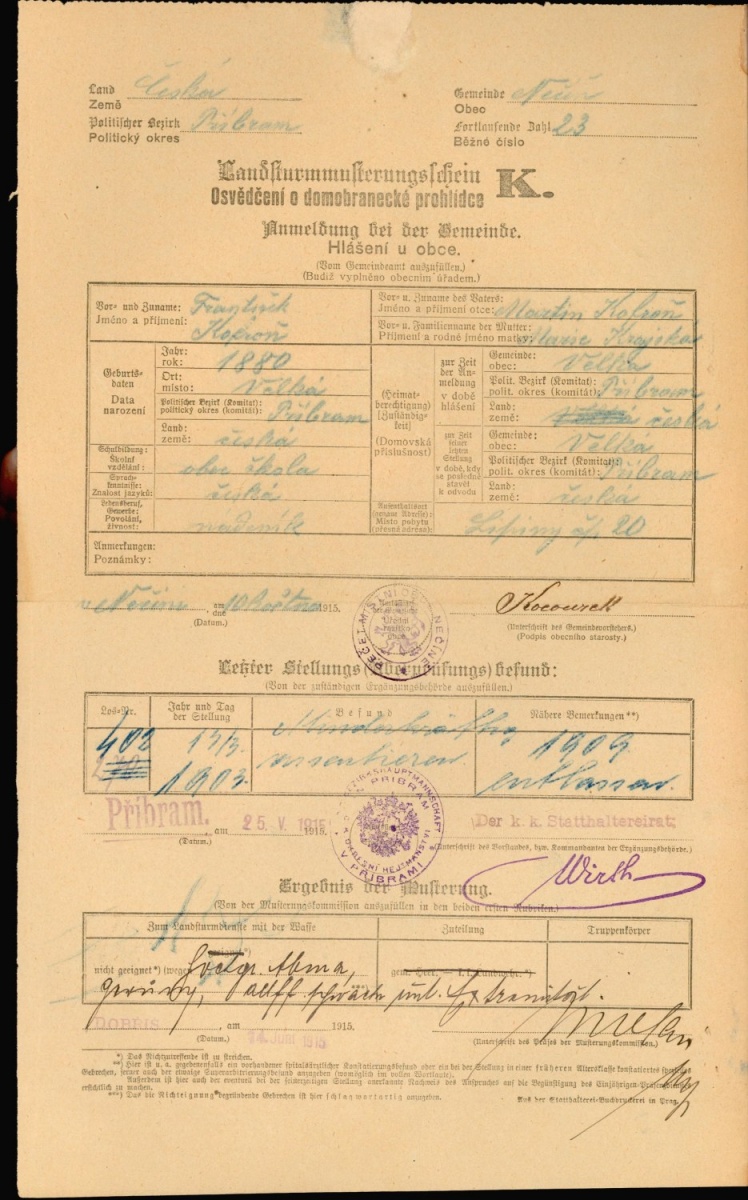 Land Česká
Země
Politischer Bezirk Příbram
Politický okres
Gemeinde Nečín
Obec
Fortlaufende Zahl 23
Běžné číslo
Landsturmmusterungsschein K.
Osvědčení o domobranecké prohlídce
Anmeldung bei der Gemeinde.
Hlášení u obce.
(Vom Gemeindeamt auszufüllen.)
(Budiž vyplněno obecním úřadem.)
Vor- und Zuname: František
Jméno a příjmení: Kofroň
Vor- u. Zuname des Vaters:
Jméno a příjmení otce: Martin Kofroň
Vor- u. Familienname der Mutter:
Příjmení a rodné jméno matky: Marie Krajská
Geburtsdaten
Data narození
Jahr:
rok: 1880
Ort:
místo: Velká
Politischer Bezirk (Komitat):
politický okres (komitát): Příbram
Land:
země: česká
(Heimatberechtigung)
(Zuständigkeit)
(Domovská příslušnost)
zur Zeit der Anmeldung
v době hlášení
Gemeinde:
obec: Velká
Polit. Bezirk (Komitat):
polit. okres (komitát): Příbram
Land:
země: česká
zur Zeit seiner letzten Stellung
v době, kdy se posledně stavěl k odvodu
Gemeinde:
obec: Velká
Politischer Bezirk (Komitat):
polit. okres (komitát): Příbram
Land:
země: česka
Schulbildung:
Školní vzdělání: obec. škola
Sprachkenntnisse:
Znalost jazyků: česká
Lebensberuf, Gewerbe:
Povolání, živnost: nádeník
Aufenthaltsort (genaue Adresse):
Místo pobytu (přesná adresa): 20
Anmerkungen:
Poznámky:
v Nečíni am dne 10 května 1915.
(Datum.)
Kocourek
(Unterschrift des Gemeindevorstehers.)
(Podpis obecního starosty.)
PEČEŤ MÍSTNÍ OBCE NEČÍNĚ
Letzter Stellungs(Überprüfungs)befund:
(Von der zuständigen Ergänzungsbehörde auszufüllen.)
Los-Nr.
Jahr und Tag der Stellung
Befund
Nähere Bemerkungen **)
402
1903
1909
entlassen.
Příbram. , am 25. V. 1915 1915.
(Datum.)
K. K. BEZIRKSHAUPTMANNSCHAFT IN PŘIBRAM
C. K. OKRESNÍ HEJTMANSTVÍ V PŘÍBRAMI
Der k. k. Statthaltereirat:
(Unterschrift des Vorstandes, bzw. Kommandanten der Ergänzungsbehörde.)
Wirth
Ergebnis der Musterung.
(Von der Musterungskommission auszufüllen in den beiden ersten Rubriken.)
Zum Landsturmdienste mit der Waffe
Zuteilung
Truppenkörper
geeignet*)
nicht geeignet*) (wegen
DOBRIS , am 14. Juni 1915 1915.
(Datum.)
(Unterschrift des Präses der Musterungskommission.)
*) Das Nichtzutreffende ist zu streichen.
**) Hier ist u. a. gegebenenfalls ein vorhandener spitalsärztlicher Konstatierungsbefund oder ein bei der Stellung in einer früheren Altersklasse konstatiertes spezielles
Gebrechen, ferner auch der etwaige Superarbitrierungsbefund anzugeben (womöglich im vollen Wortlaute).
Außerdem ist hier auch der eventuell bei der seinerzeitigen Stellung anerkannte Nachweis des Anspruches auf die Begünstigung des Einjährigen-Präsenzdienstes
ersichtlich zu machen.
***) Das die Nichteignung begründende Gebrechen ist hier schlagwortartig anzugeben.
Aus der Statthalterei-Buchdruckerei in Prag.